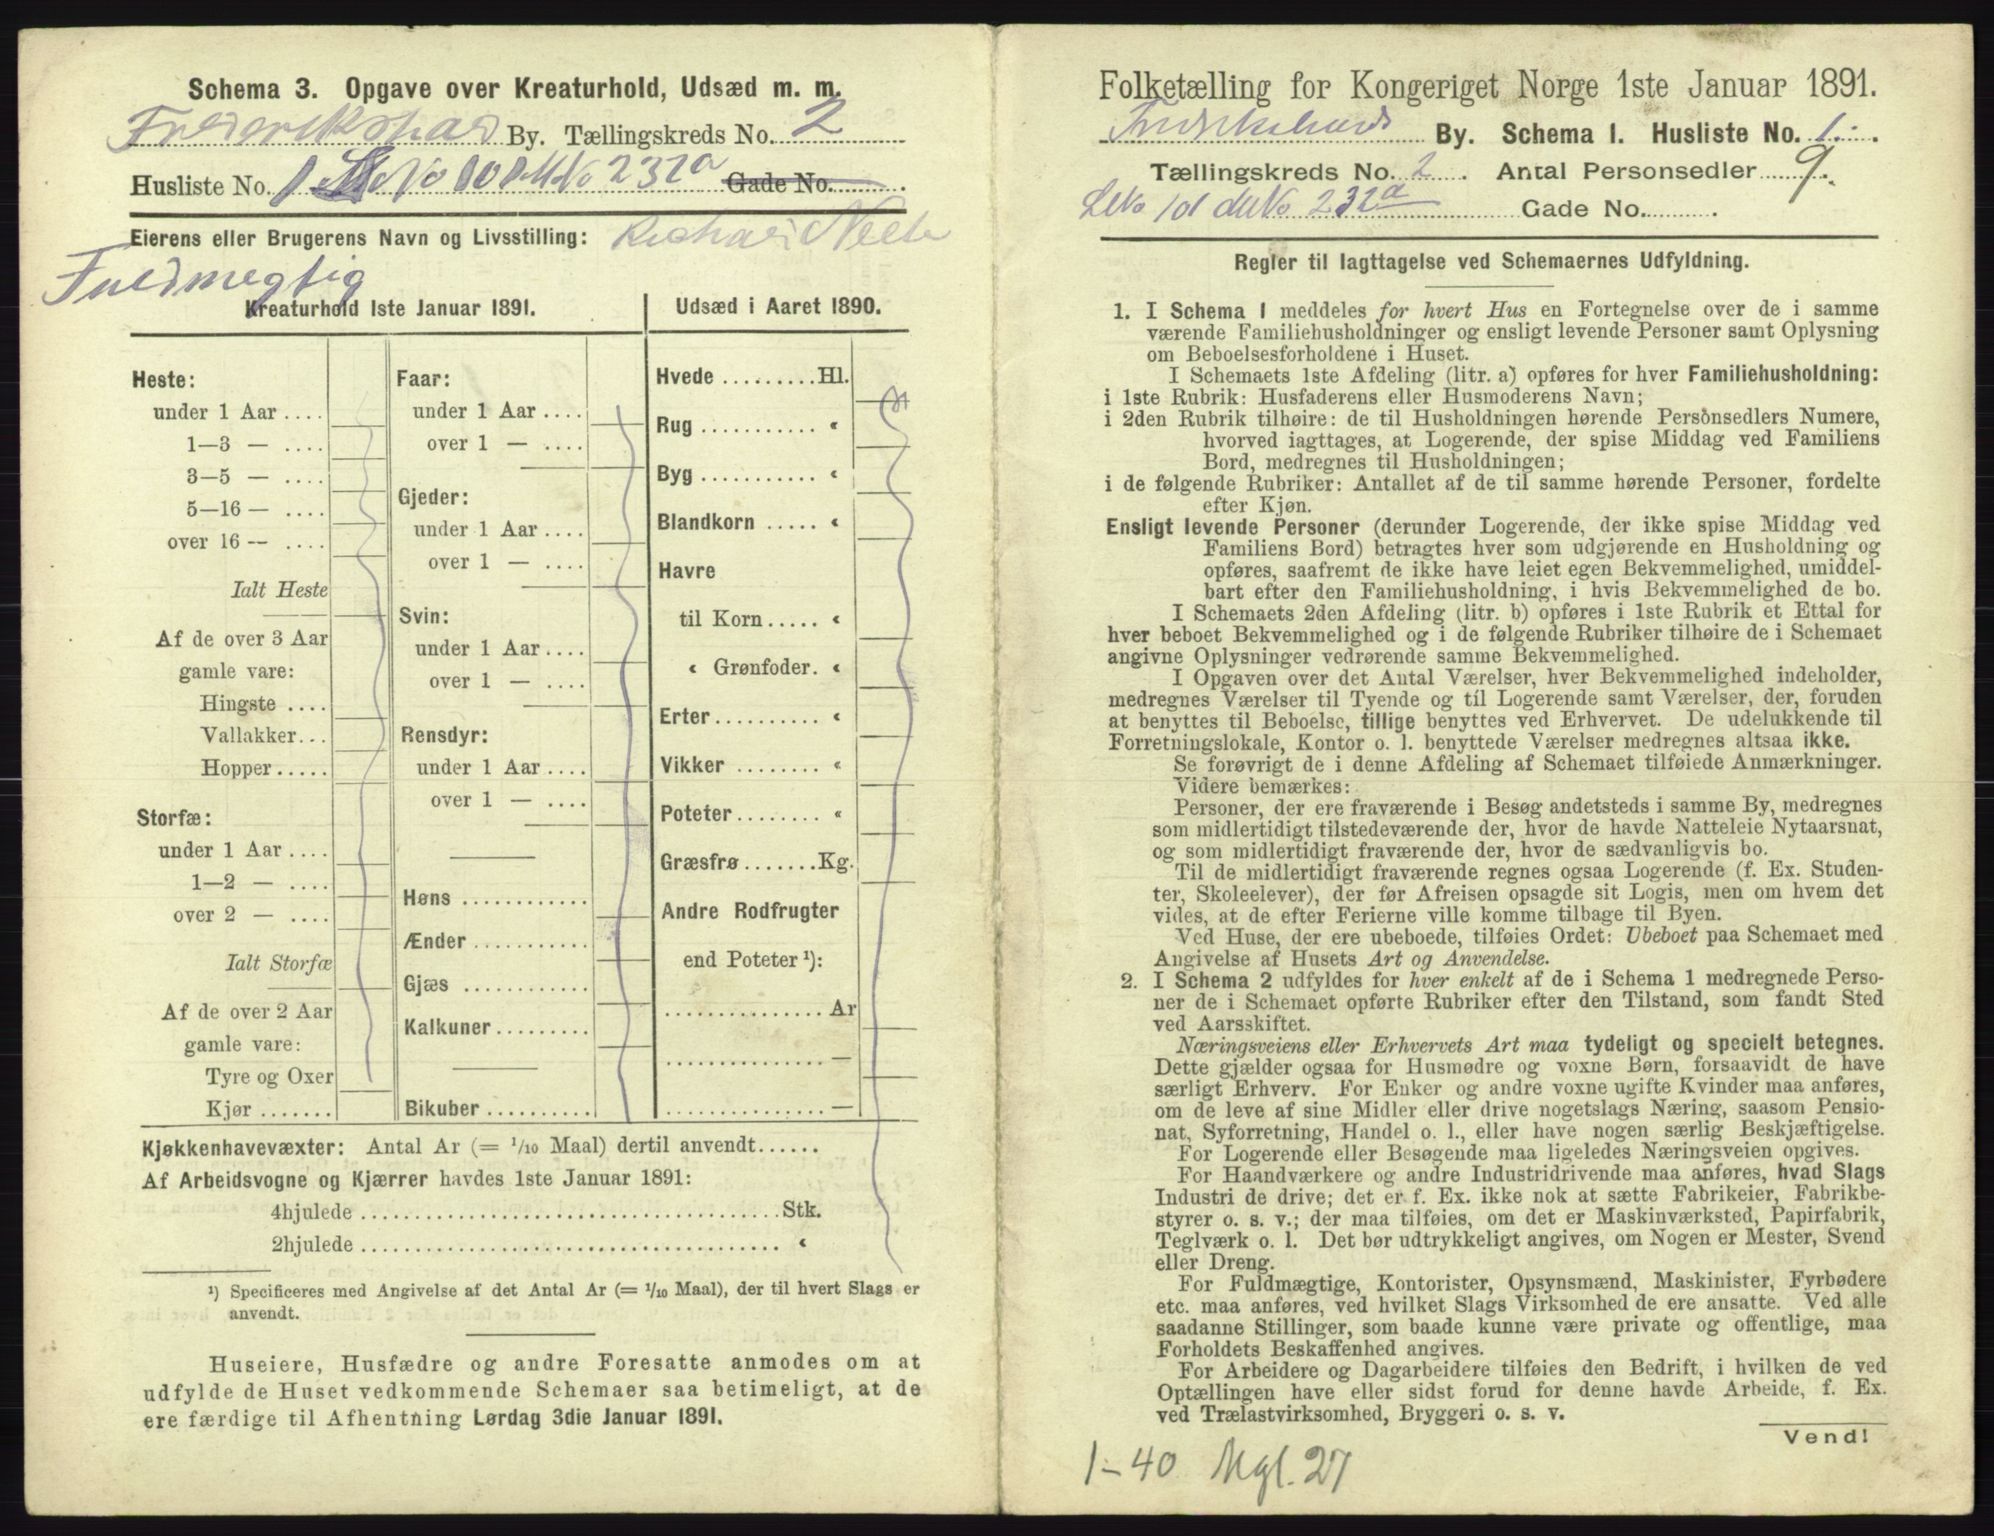 Schema 3. Opgave over Kreaturhold, Udsæd m. m.
By. Tællingskreds No. 2
Husliste No. 1 LNo 101 MNo 232a Gade No.
Eierens eller Brugerens Navn og Livsstilling: Richard
Fuldmegtig
Kreaturhold 1ste Januar 1891.
Heste:
under 1 Aar ....
1—3 — ....
3—5 — ....
5—16 — ....
over 16 — ....
Ialt Heste
Af de over 3 Aar
gamle vare:
Hingste ....
Vallakker...
Hopper.....
Storfæ:
under 1 Aar....
1—2 — ....
over 2 — ....
Ialt Storfæ
Af de over 2 Aar
gamle vare:
Tyre og Oxer
Kjør .......
Faar:
under 1 Aar....
over 1 — ....
Gjeder:
under 1 Aar....
over 1 — ....
Svin:
under 1 Aar....
over 1 — ....
Rensdyr:
under 1 Aar....
over 1 — ....
Høns ............
Ænder...........
Gjæs ............
Kalkuner.........
Bikuber ..........
Udsæd i Aaret 1890.
Hvede .........Hl.
Rug ........... “
Byg ........... “
Blandkorn ..... “
Havre
til Korn..... “
“ Grønfoder. “
Erter.......... “
Vikker ........ “
Poteter........ “
Græsfrø.......Kg.
Andre Rodfrugter
end Poteter ¹):
...............Ar
...............—
...............—
Kjøkkenhavevæxter: Antal Ar (= 1/10 Maal) dertil anvendt......
Af Arbeidsvogne og Kjærrer havdes 1ste Januar 1891:
4hjulede ........................................Stk.
2hjulede ........................................ “
¹) Specificeres med Angivelse af det Antal Ar (= 1/10 Maal), der til hvert Slags er
anvendt.
Huseiere, Husfædre og andre Foresatte anmodes om at
udfylde de Huset vedkommende Schemaer saa betimeligt, at de
ere færdige til Afhentning Lørdag 3die Januar 1891.
Folketælling for Kongeriget Norge 1ste Januar 1891.
By. Schema 1. Husliste No. 1.
Tællingskreds No. 2. Antal Personsedler 9.
LNo 101 MNo 232a Gade No..........
Regler til Iagttagelse ved Schemaernes Udfyldning.
1. I Schema 1 meddeles for hvert Hus en Fortegnelse over de i samme
værende Familiehusholdninger og ensligt levende Personer samt Oplysning
om Beboelsesforholdene i Huset.
I Schemaets 1ste Afdeling (litr. a) opføres for hver Familiehusholdning:
i 1ste Rubrik: Husfaderens eller Husmoderens Navn;
i 2den Rubrik tilhøire: de til Husholdningen hørende Personsedlers Numere,
hvorved iagttages, at Logerende, der spise Middag ved Familiens
Bord, medregnes til Husholdningen;
i de følgende Rubriker: Antallet af de til samme hørende Personer, fordelte
efter Kjøn.
Ensligt levende Personer (derunder Logerende, der ikke spise Middag ved
Familiens Bord) betragtes hver som udgjørende en Husholdning og
opføres, saafremt de ikke have leiet egen Bekvemmelighed, umiddel-
bart efter den Familiehusholdning, i hvis Bekvemmelighed de bo.
I Schemaets 2den Afdeling (litr. b) opføres i 1ste Rubrik et Ettal for
hver beboet Bekvemmelighed og i de følgende Rubriker tilhøire de i Schemaet
angivne Oplysninger vedrørende samme Bekvemmelighed.
I Opgaven over det Antal Værelser, hver Bekvemmelighed indeholder,
medregnes Værelser til Tyende og til Logerende samt Værelser, der, foruden
at benyttes til Beboelse, tillige benyttes ved Erhvervet. De udelukkende til
Forretningslokale, Kontor o. l. benyttede Værelser medregnes altsaa ikke.
Se forøvrigt de i denne Afdeling af Schemaet tilføiede Anmærkninger.
Videre bemærkes:
Personer, der ere fraværende i Besøg andetsteds i samme By, medregnes
som midlertidigt tilstedeværende der, hvor de havde Natteleie Nytaarsnat,
og som midlertidigt fraværende der, hvor de sædvanligvis bo.
Til de midlertidigt fraværende regnes ogsaa Logerende (f. Ex. Studen-
ter, Skoleelever), der før Afreisen opsagde sit Logis, men om hvem det
vides, at de efter Ferierne ville komme tilbage til Byen.
Ved Huse, der ere ubeboede, tilføies Ordet: Ubeboet paa Schemaet med
Angivelse af Husets Art og Anvendelse.
2. I Schema 2 udfyldes for hver enkelt af de i Schema 1 medregnede Perso-
ner de i Schemaet opførte Rubriker efter den Tilstand, som fandt Sted
ved Aarsskiftet.
Næringsveiens eller Erhvervets Art maa tydeligt og specielt betegnes.
Dette gjælder ogsaa for Husmødre og voxne Børn, forsaavidt de have
særligt Erhverv. For Enker og andre voxne ugifte Kvinder maa anføres,
om de leve af sine Midler eller drive nogetslags Næring, saasom Pensio-
nat, Syforretning, Handel o. l., eller have nogen særlig Beskjæftigelse.
For Logerende eller Besøgende maa ligeledes Næringsveien opgives.
For Haandværkere og andre Industridrivende maa anføres, hvad Slags
Industri de drive; det er f. Ex. ikke nok at sætte Fabrikeier, Fabrikbe-
styrer o. s. v.; der maa tilføies, om det er Maskinværksted, Papirfabrik,
Teglværk o. l. Det bør udtrykkeligt angives, om Nogen er Mester, Svend
eller Dreng.
For Fuldmægtige, Kontorister, Opsynsmænd, Maskinister, Fyrbødere
etc. maa anføres, ved hvilket Slags Virksomhed de ere ansatte. Ved alle
saadanne Stillinger, som baade kunne være private og offentlige, maa
Forholdets Beskaffenhed angives.
For Arbeidere og Dagarbeidere tilføies den Bedrift, i hvilken de ved
Optællingen have eller sidst forud for denne havde Arbeide, f. Ex.
ved Trælastvirksomhed, Bryggeri o. s. v.
Vend!
1-40 Mgl. 27